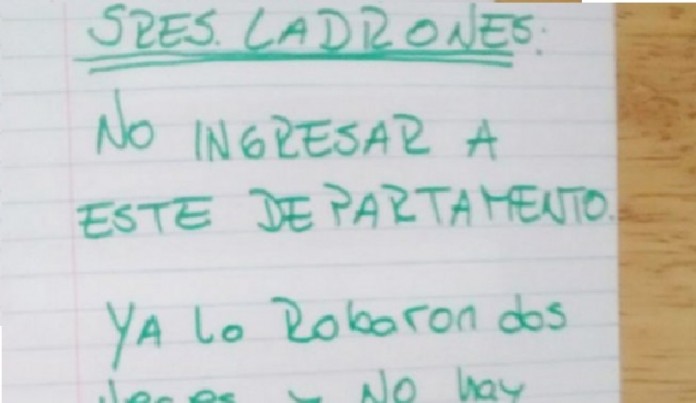 SRES. LADRONES:
NO INGRESAR A
ESTE DEPARTAMENTO.
YA lo Robaron dos
veces y NO hay